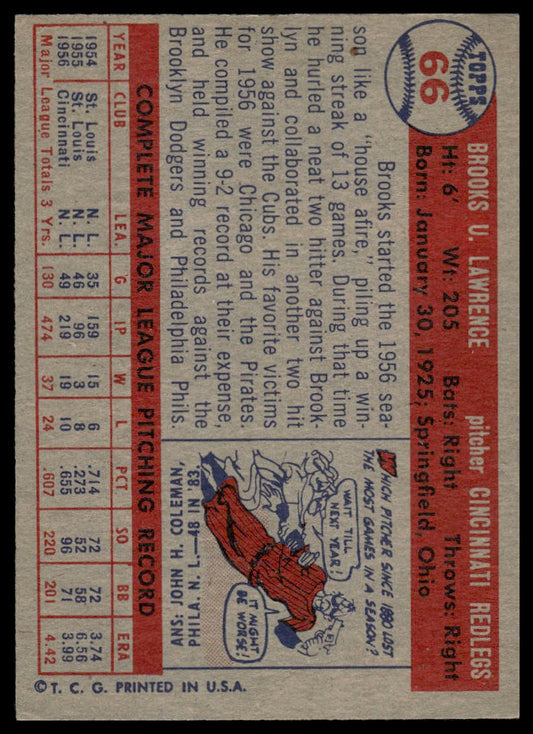 TOPPS
66
BROOKS U. LAWRENCE pitcher CINCINNATI REDLEGS
Ht: 6' Wt: 205 Bats: Right Throws: Right
Born: January 30, 1925; Springfield, Ohio
Brooks started the 1956 sea-
son like a "house afire," piling up a win-
ning streak of 13 games. During that time
he hurled a neat two hitter against Brook-
lyn and collaborated in another two hit
show against the Cubs. His favorite victims
for 1956 were Chicago and the Pirates.
He compiled a 9-2 record at their expense,
and held winning records against the
Brooklyn Dodgers and Philadelphia Phils.
WHICH PITCHER SINCE 1880 LOST
THE MOST GAMES IN A SEASON?
WAIT TILL
NEXT YEAR!
IT MIGHT
BE WORSE!
ANS: JOHN H. COLEMAN,
PHILA. N. L.—48 IN '83.
COMPLETE MAJOR LEAGUE PITCHING RECORD
YEAR CLUB LEA. G IP W L PCT SO BB ERA
1954 St. Louis N. L. 35 159 15 6 .714 72 72 3.74
1955 St. Louis N. L. 46 96 3 8 .273 52 58 6.56
1956 Cincinnati N. L. 49 219 19 10 .655 96 71 3.99
Major League Totals 3 Yrs. 130 474 37 24 .607 220 201 4.42
© T. C. G. PRINTED IN U.S.A.